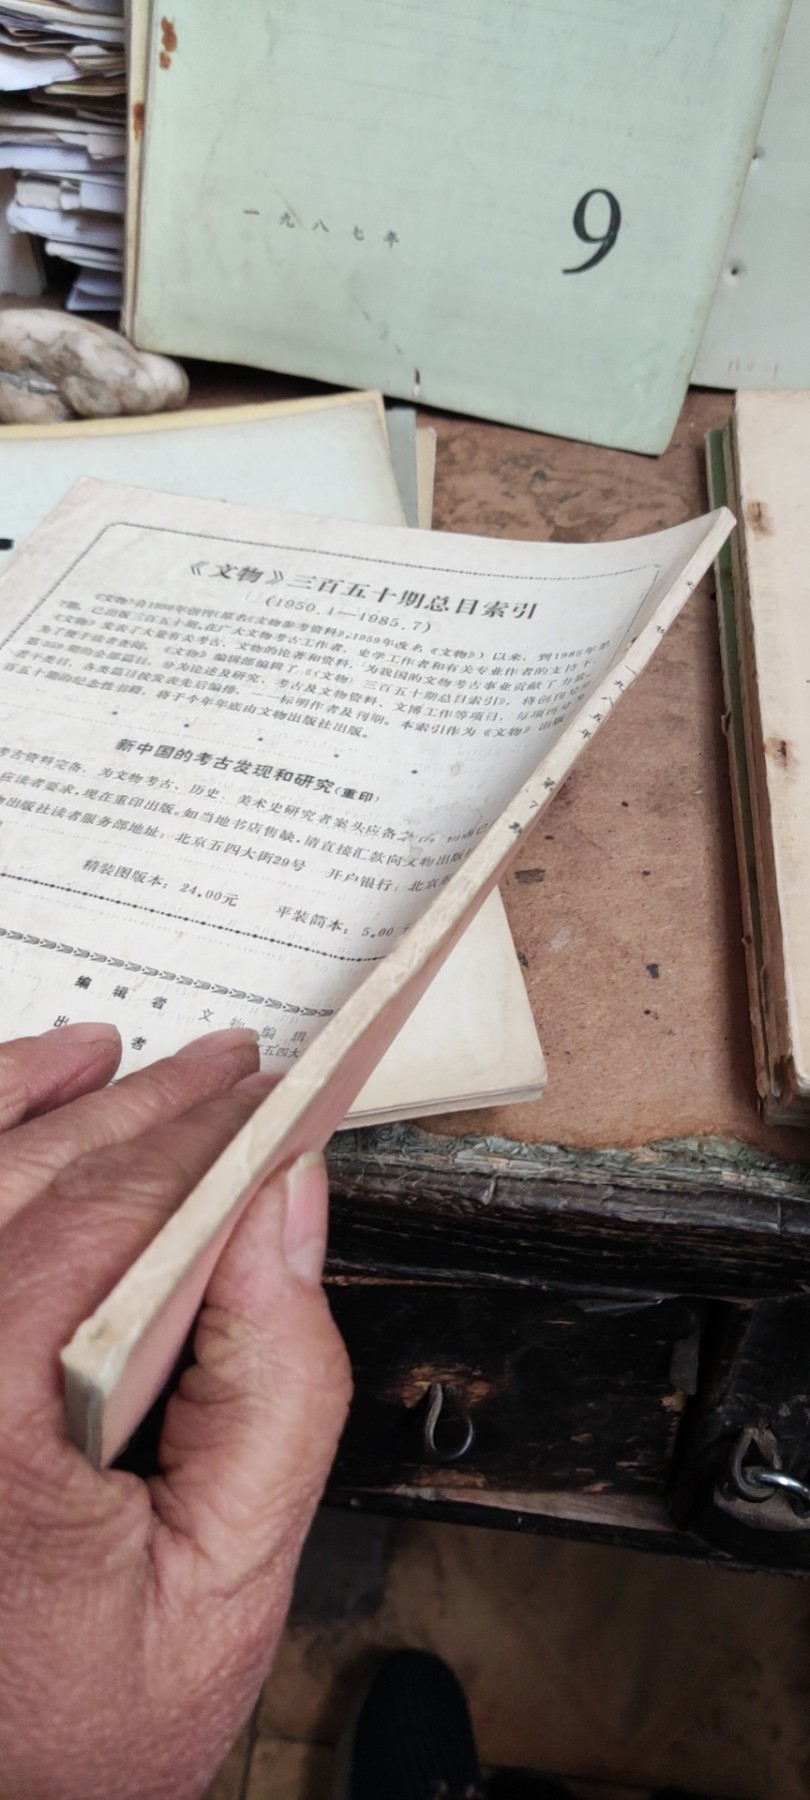 一九八七年
9
《文物》三百五十期总目索引
(1950.1—1985.7)
《文物》自1950年创刊(原名《文物参考资料》,1959年改名《文物》)以来,到1985年第
7期,已出版三百五十期。在广大文物考古工作者、史学工作者和有关专业作者的支持下,
《文物》发表了大量有关考古、文物的论著和资料,为我国的文物考古事业贡献了力量。
为了便于读者查阅,《文物》编辑部编辑了《〈文物〉三百五十期总目索引》,将创刊号
第350期的全部篇目,分为论述及研究、考古及文物资料、文博工作等项目,每项再分
若干类目,各类篇目按发表先后编排,一一标明作者及刊期。本索引作为《文物》出版
百五十期的纪念性书籍,将于今年年底由文物出版社出版。
新中国的考古发现和研究(重印)
考古资料完备,为文物考古、历史、美术史研究者案头应备之
应读者要求,现在重印出版。如当地书店售缺,请直接汇款向文物出版
物出版社读者服务部地址:北京五四大街29号 开户银行:北京
精装图版本:24.00元 平装简本:5.00
编辑者 文物编辑
出 者 五四大
文物 一九八五年 第7期